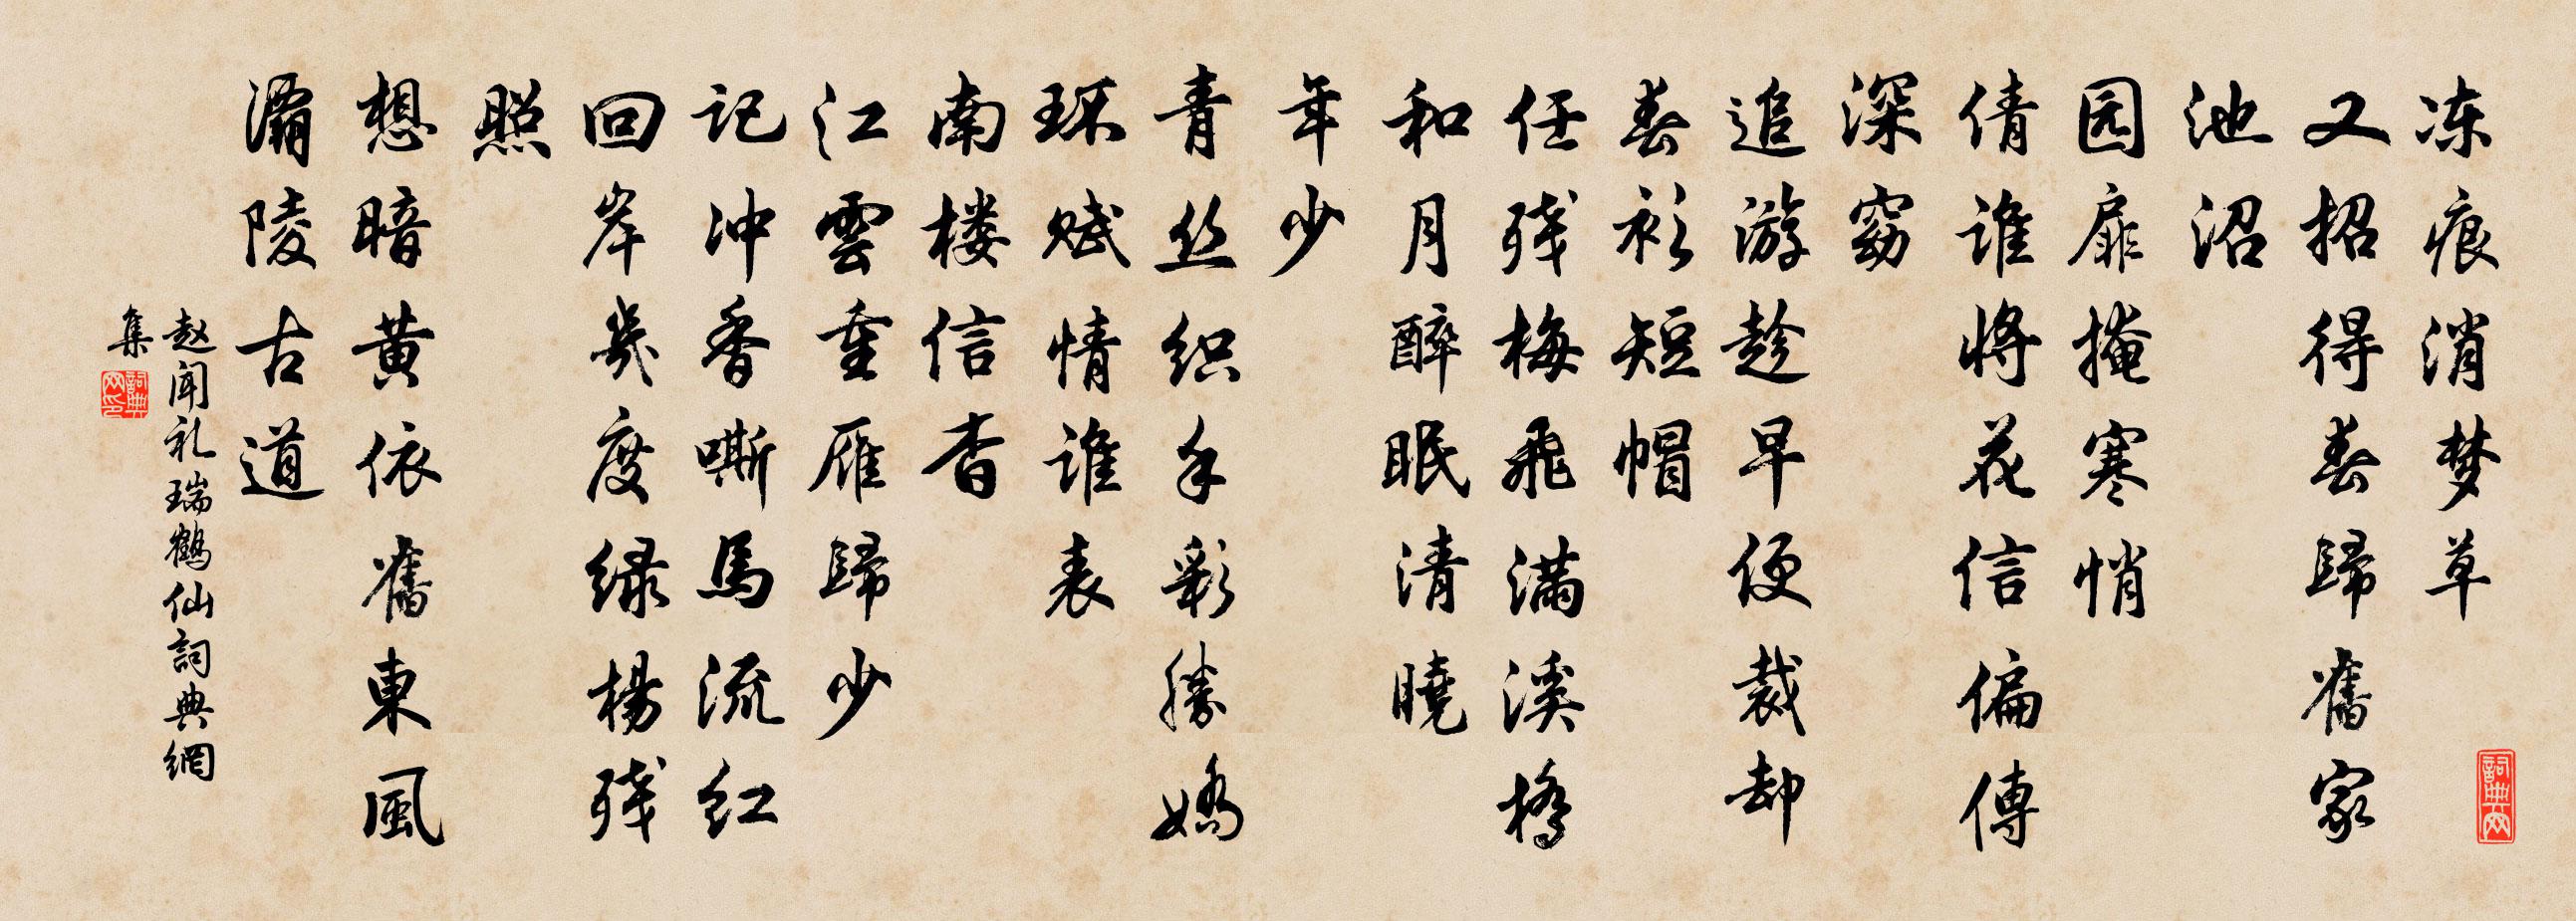 冻痕消梦草
又招得春歸舊家
池沼
园扉掩寒悄
倩谁将花信偏傳
深窈
追游趁早便裁却
春衫短帽
任残梅飛满溪橋
和月醉眠清曉
年少
青丝织手彩勝嬌
环赋情谁表
南楼信杳
江雲重雁歸少
记冲香嘶馬流红
回岸幾度绿楊残
照
想暗黄依舊東風
灞陵古道
赵闻礼瑞鹤仙詞典網
集
詞典网印
詞典网